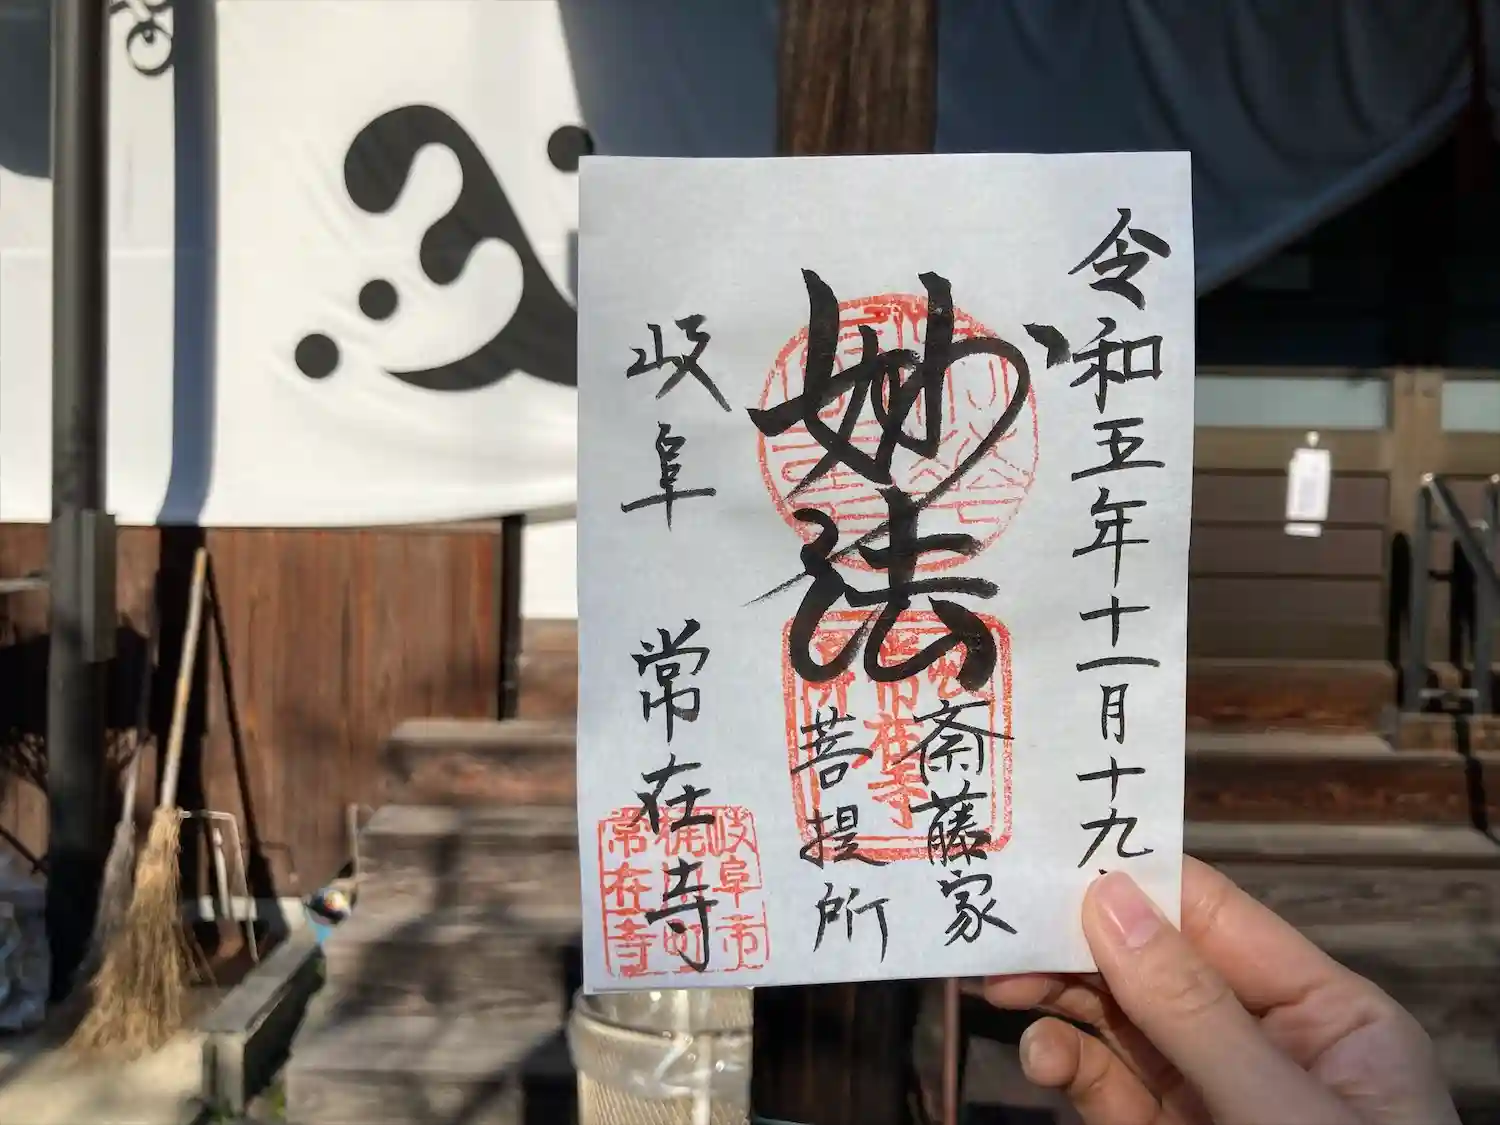 令和五年十一月十九
妙法
斎藤家
菩提所
岐阜 常在寺
岐阜市
梶川町
常在寺